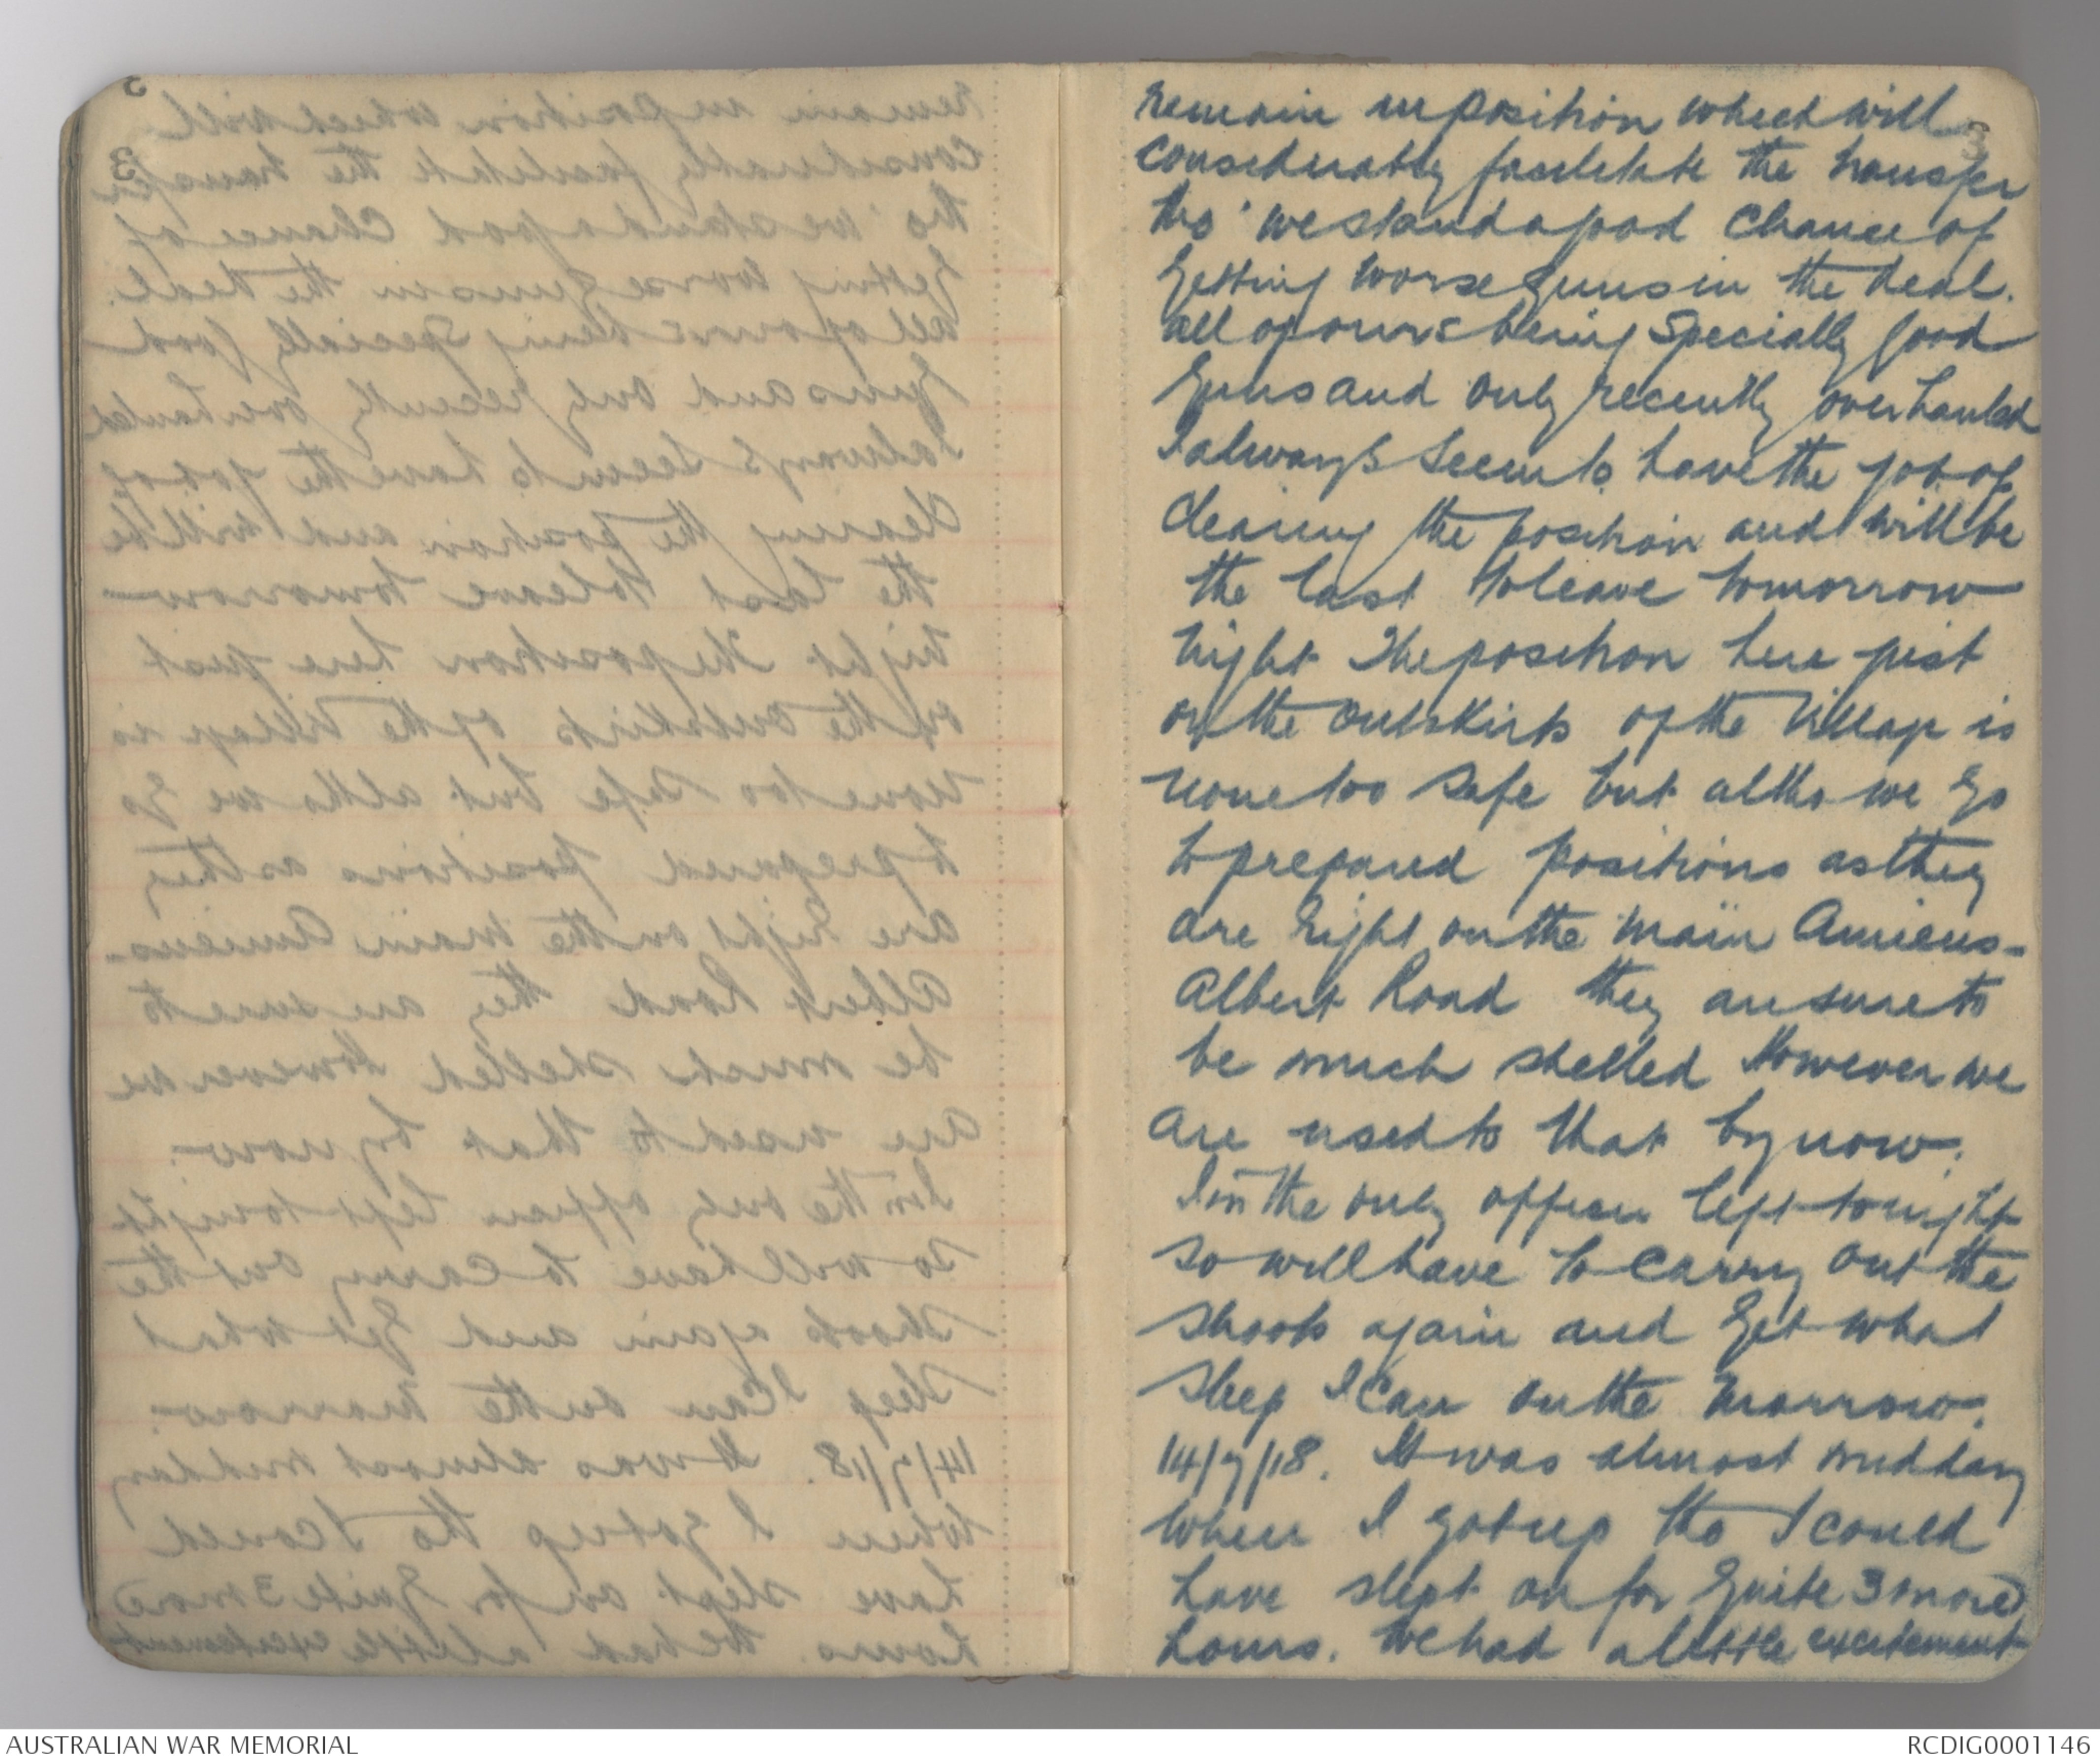 3
remain in position which will
considerably facilitate the transfer
tho' we stand a good chance of
getting worse guns in the deal.
All of ours being specially good
guns and only recently overhauled
I always seem to have the job of
clearing the position and will be
the last to leave tomorrow
night The position here just
on the outskirts of the village is
none too safe but altho we go
to prepared positions as they
are right on the main Amiens-
Albert Road they are sure to
be much shelled However we
are used to that by now.
I'm the only officer left tonight
so will have to carry out the
shoots again and get what
sleep I can on the morrow.
14/7/18. It was almost midday
when I got up tho I could
have slept on for quite 3 more
hours. We had a little excitement
AUSTRALIAN WAR MEMORIAL
RCDIG0001146